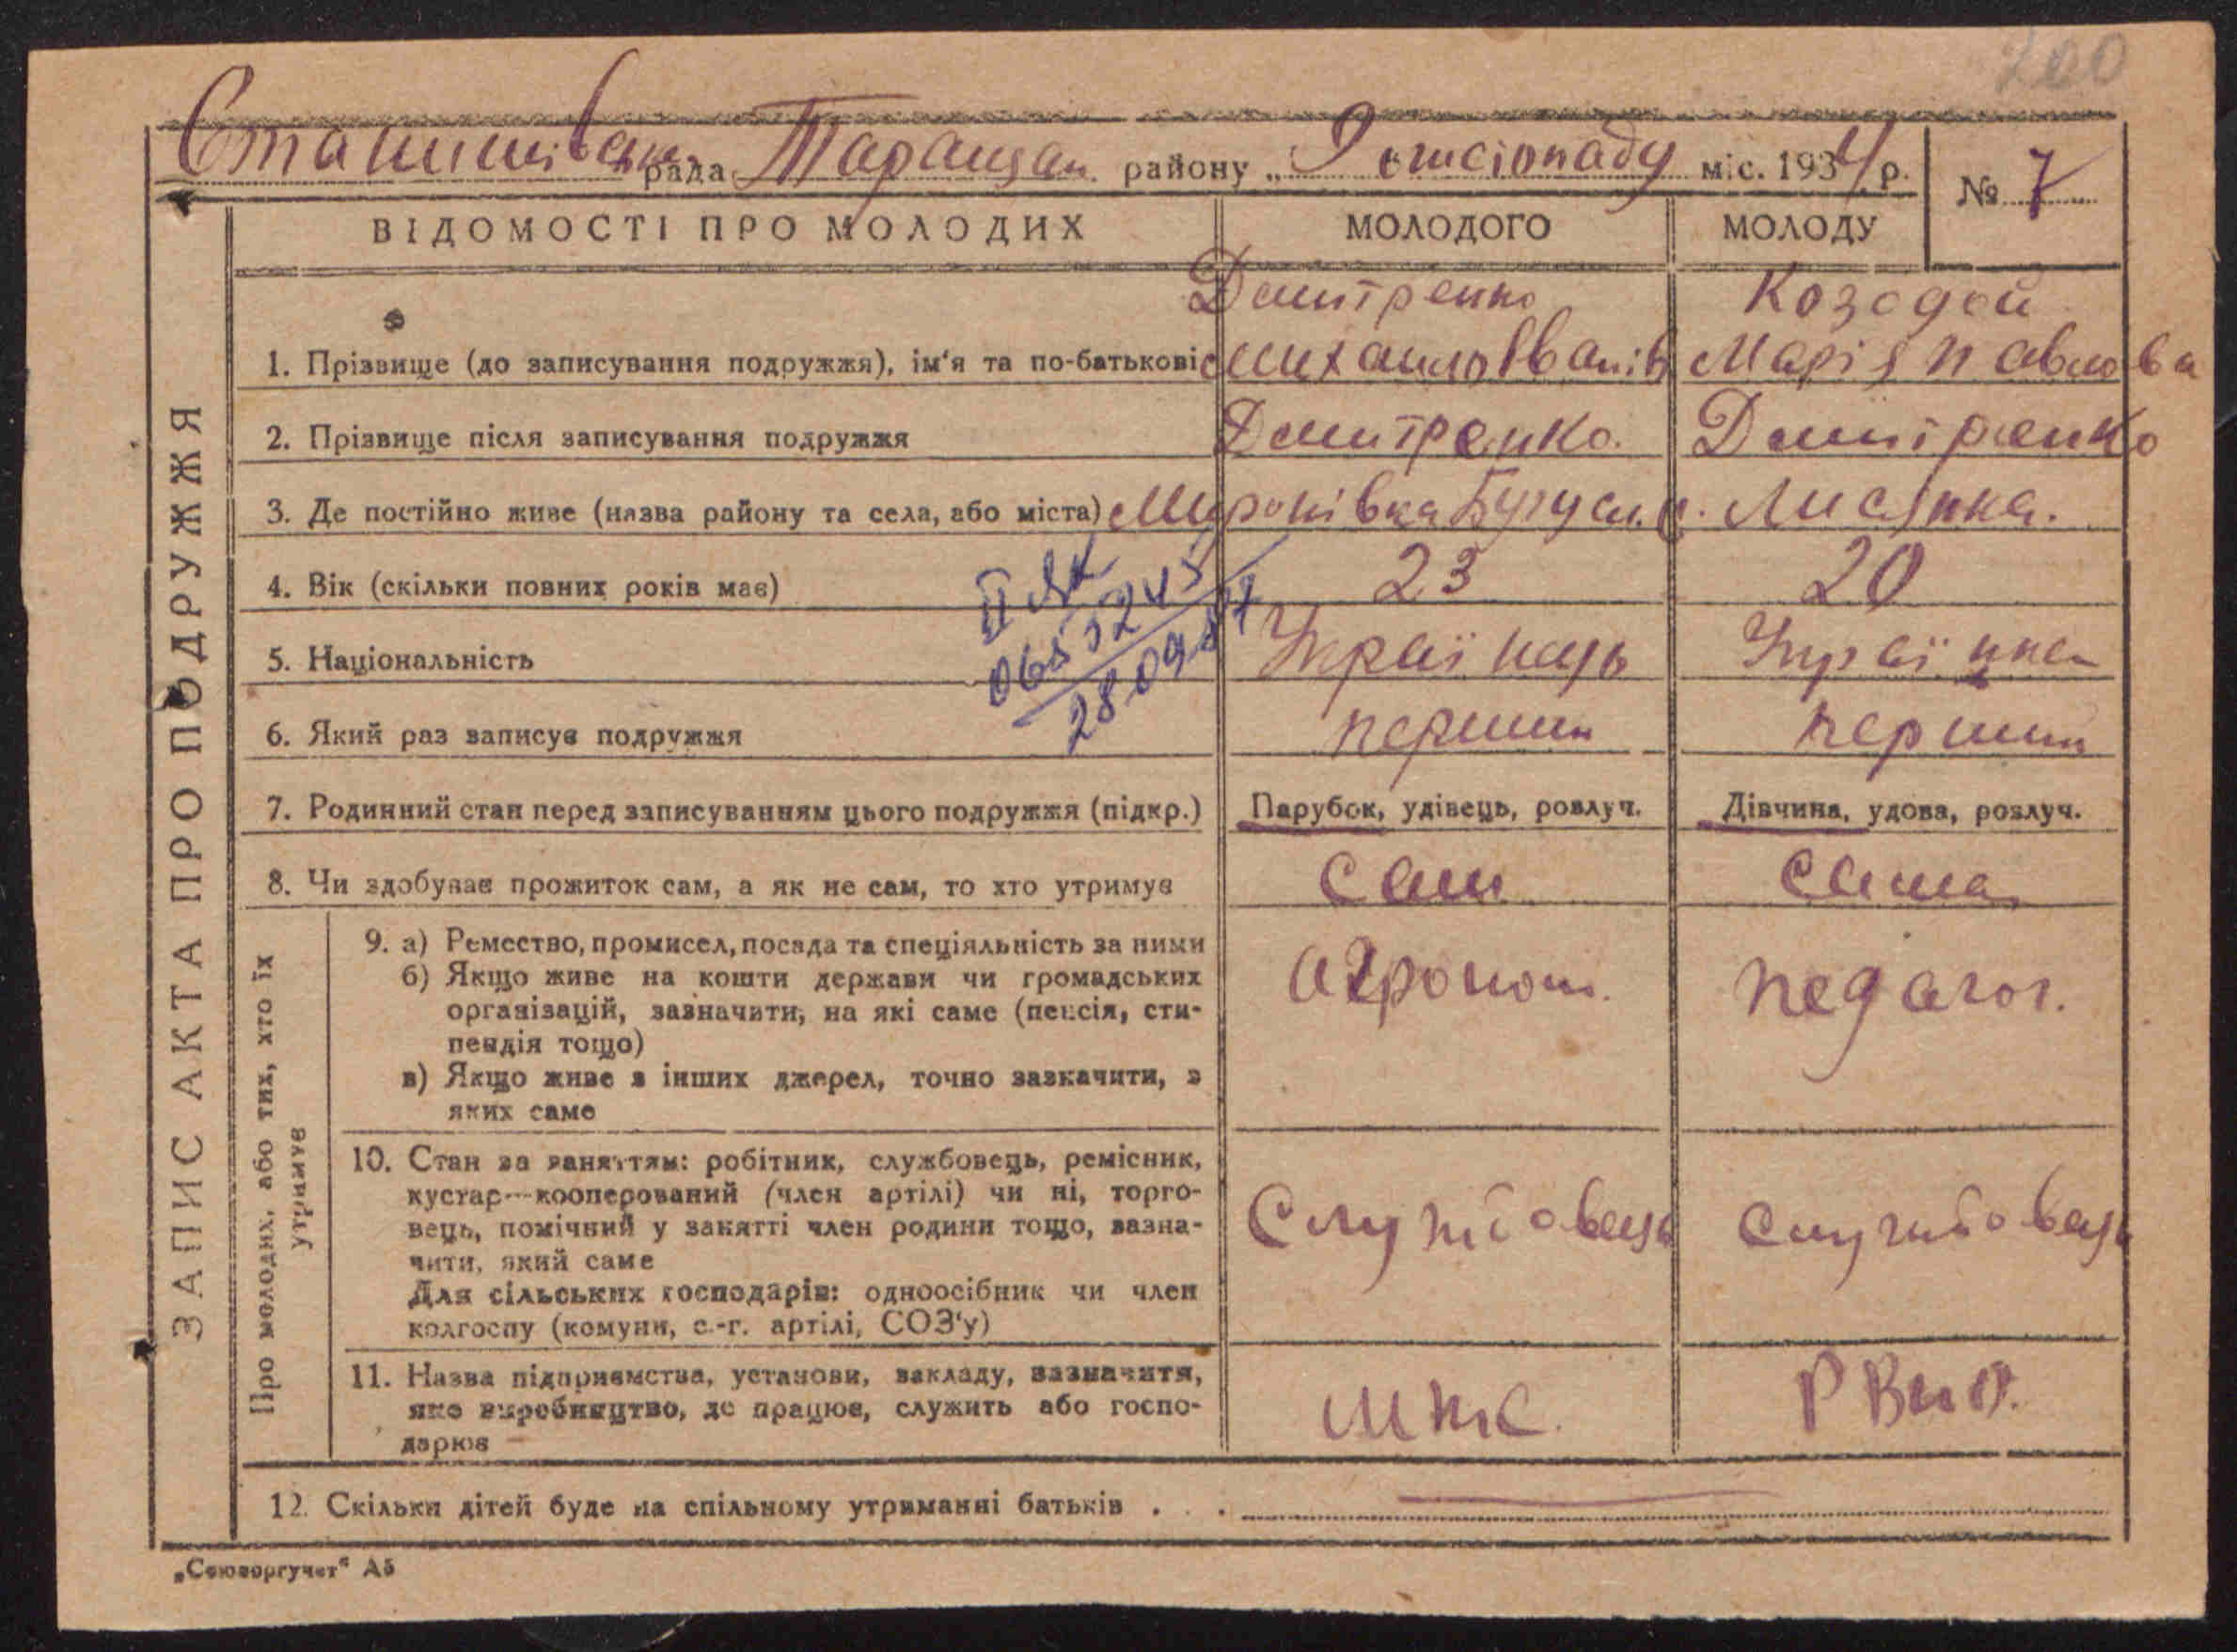 200
Сташишівськ рада Таращан. району „ 9 " листопаду міс. 1934 р. № 7
ВІДОМОСТІ ПРО МОЛОДИХ МОЛОДОГО МОЛОДУ
ЗАПИС АКТА ПРО ПОДРУЖЖЯ
Дмитренко Козодой
1. Прізвище (до записування подружжя), ім'я та по-батькові Михаило Іванів Марія Павлова
2. Прізвище після записування подружжя Дмитренко. Дмитренко
3. Де постійно живе (назва району та села, або міста) Миронівка Богусл. р. Лисянка.
4. Вік (скільки повних років має) 23 20
II ЯК
28.09.
5. Національність Українець Українка
6. Який раз записує подружжя перший перший
7. Родинний стан перед записуванням цього подружжя (підкр.) Парубок, удівець, розлуч. Дівчина, удова, розлуч.
8. Чи здобуває прожиток сам, а як не сам, то хто утримує сам сама
Про молодих, або тих, хто їх утримує
9. а) Ремество, промисел, посада та спеціяльність за ними агроном. педагог.
б) Якщо живе на кошти держави чи громадських
організацій, зазначити, на які саме (пенсія, сти-
пендія тощо)
в) Якщо живе з інших джерел, точно зазначити, з
яких саме
10. Стан за заняттям: робітник, службовець, ремісник,
кустар—кооперований (член артілі) чи ні, торго-
вець, помічний у занятті член родини тощо, зазна- Службовець службовець
чити, який саме
Для сільських господарів: одноосібник чи член
колгоспу (комуни, с.-г. артілі, СОЗ'у)
11. Назва підприємства, установи, закладу, зазначити,
яке виробництво, де працює, служить або госпо- МТС. РВНО.
дарює
12. Скільки дітей буде на спільному утриманні батьків . . .
„Союзоргучет" А5